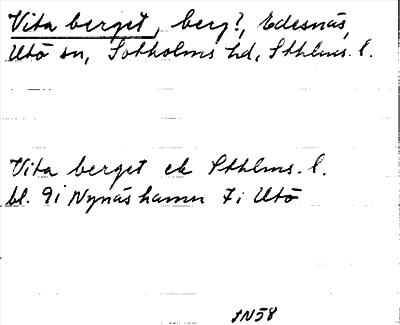 Vita berget, berg?, Edesnäs,
Utö sn, Sotholms hd, Sthlms. l.
Vita berget ek Sthlms. l.
bl. 9i Nynäshamn 7i Utö
IN58